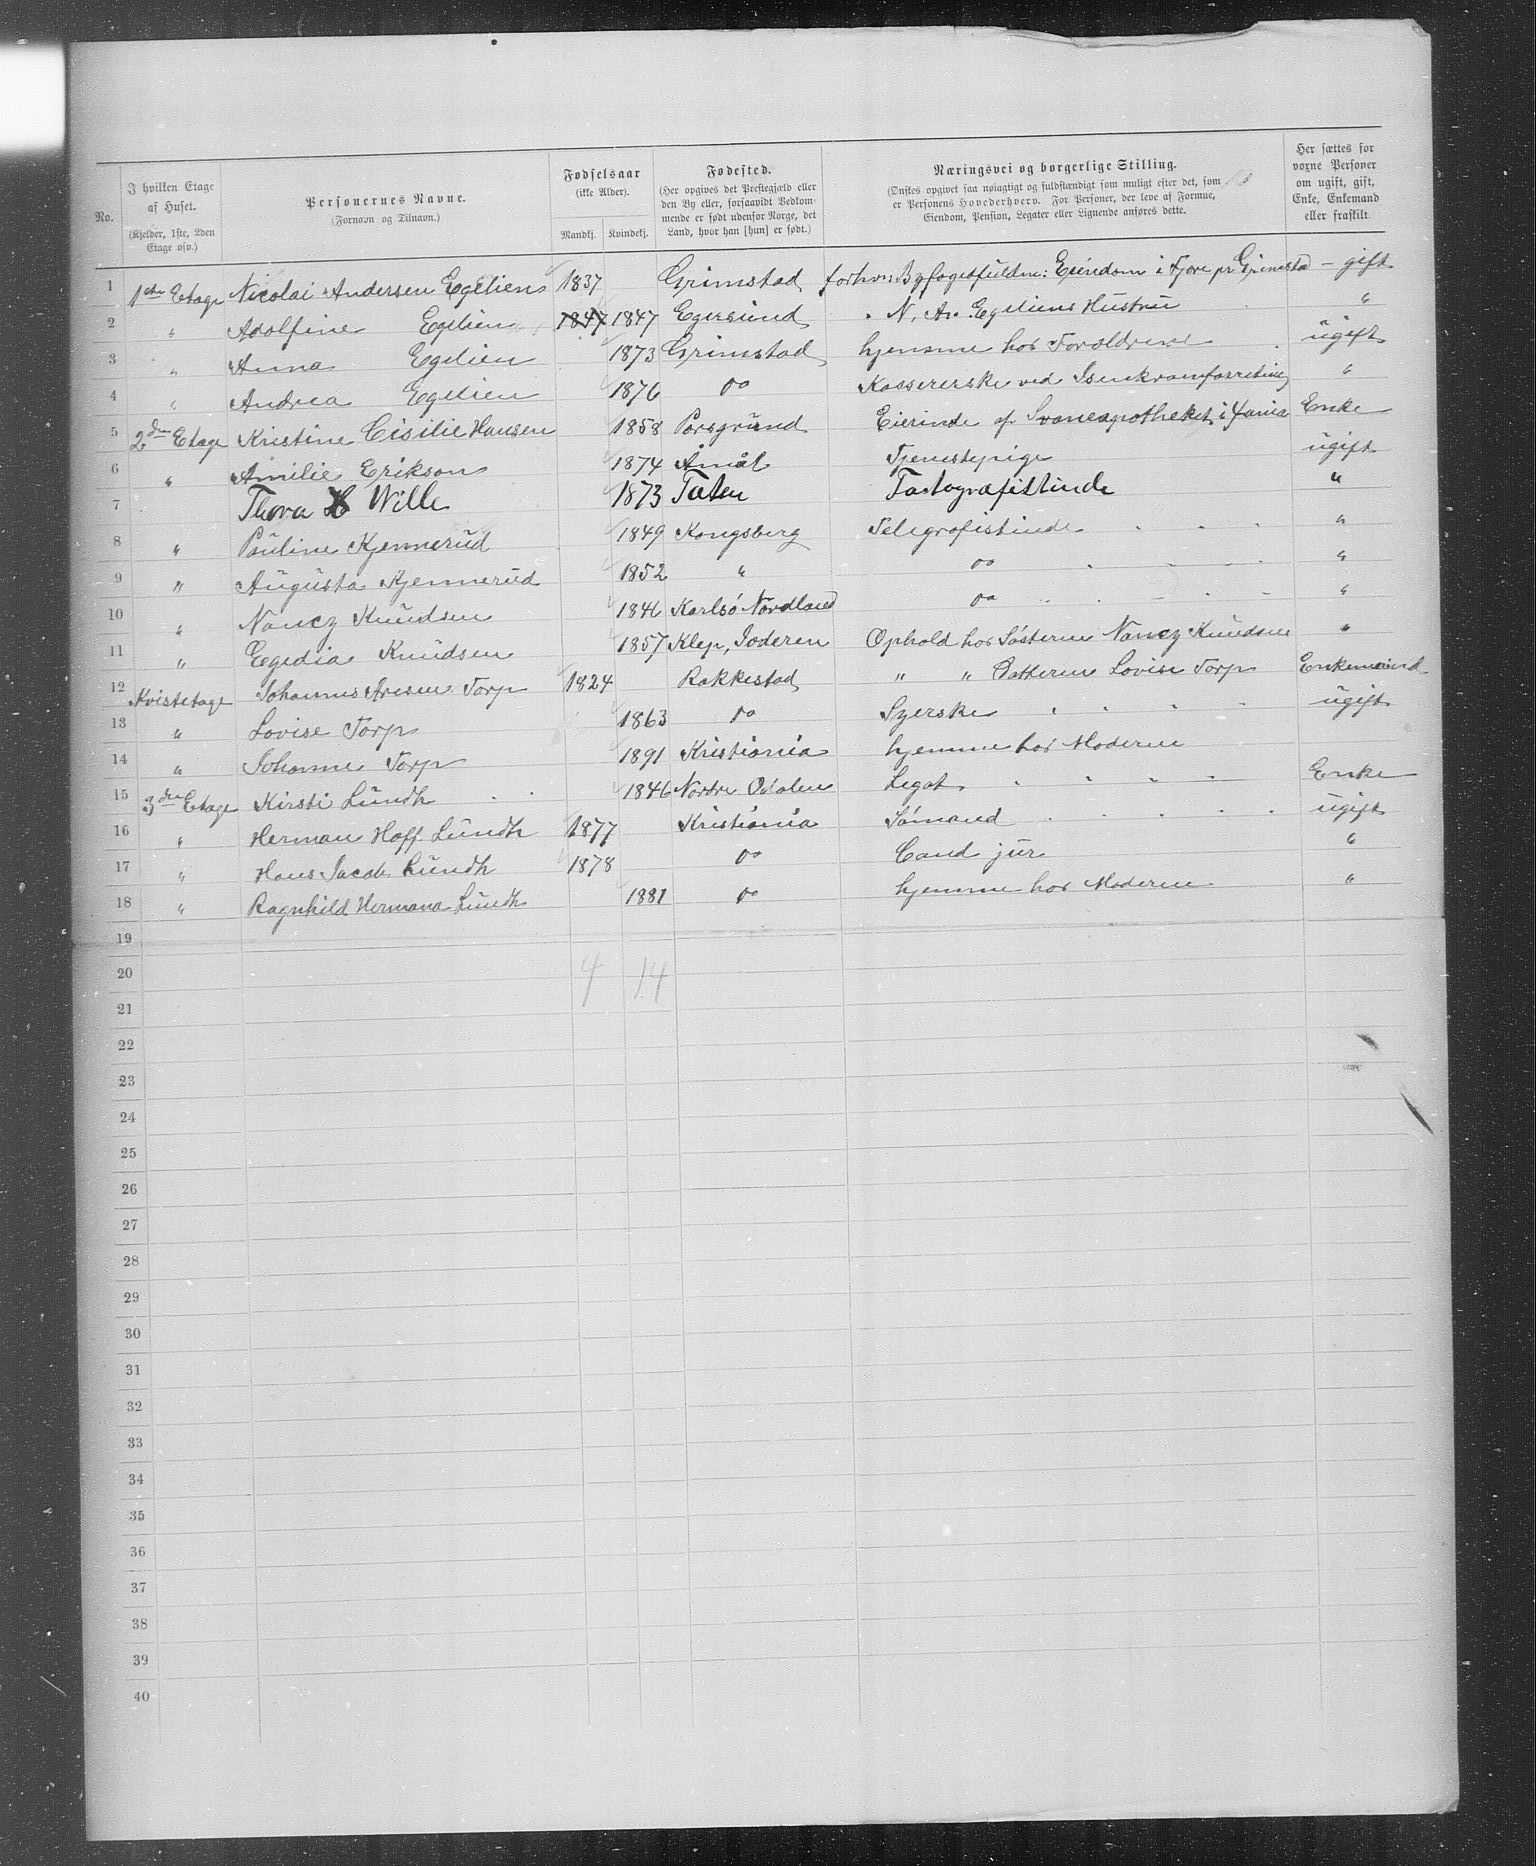 No. | I hvilken Etage af Huset. (Kjelder, 1ste, 2den Etage osv.) | Personernes Navne. (Fornavn og Tilnavn.) | Fødselsaar (ikke Alder). Mandkj. | Kvindekj. | Fødested. (Her opgives det Prestegjæld eller den By eller, forsaavidt Vedkommende er født udenfor Norge, det Land, hvor han [hun] er født.) | Næringsvei og borgerlige Stilling. (Ønskes opgivet saa nøiagtigt og fuldstændigt som muligt efter det, som er Personens Hovederhverv. For Personer, der leve af Formue, Eiendom, Pension, Legater eller Lignende anføres dette.) | Her sættes for voxne Personer om ugift, gift, Enke, Enkemand eller fraskilt.
1 1ste Etage Nicolai Andersen Egelien 1837 Grimstad forhv: Byfogedfuldm: Eiendom i Fjære pr Grimstad – gift
2 " Adolfine Egelien 1847 1847 Egersund " N. An. Egeliens Hustru "
3 " Anna Egelien 1873 Grimstad hjemme hos Forældrene ugift
4 " Andrea Egelien 1876 Do Kassererske ved Isenkramforretning "
5 2den Etage Kristine Cisilie Hansen 1858 Porsgrund Eierinde af Svaneapotheket i Xania Enke
6 " Amilie Erikson 1874 Åmål Tjenestepige ugift
7 Thora Wille 1873 Toten "
8 " Pauline Kjennerud 1849 Kongsberg Telegrafistinde "
9 " Augusta Kjennerud 1852 " Do "
10 " Nancy Knudsen 1846 Karlsö Nordland Do "
11 " Egedia Knudsen 1857 Klep, Joderen Ophold hos Søsteren Nancy Knudsen "
12 Kvistetage Johannes Torp 1824 Rakkestad " " Datteren Lovise Torp Enkemand
13 " Lovise Torp 1863 Do Syerske ugift
14 " Johanne Torp 1891 Kristiania hjemme hos Moderen
15 3die Etage Kirsti Lundh 1846 Nordre Odalen Legat Enke
16 " Herman Hoff Lundh 1877 Kristiania Sömand ugift
17 " Hans Jacob Lundh 1878 Do Cand jur "
18 " Ragnhild Hermana Lundh 1881 Do hjemme hos Moderen "
19
20 4 14
21
22
23
24
25
26
27
28
29
30
31
32
33
34
35
36
37
38
39
40